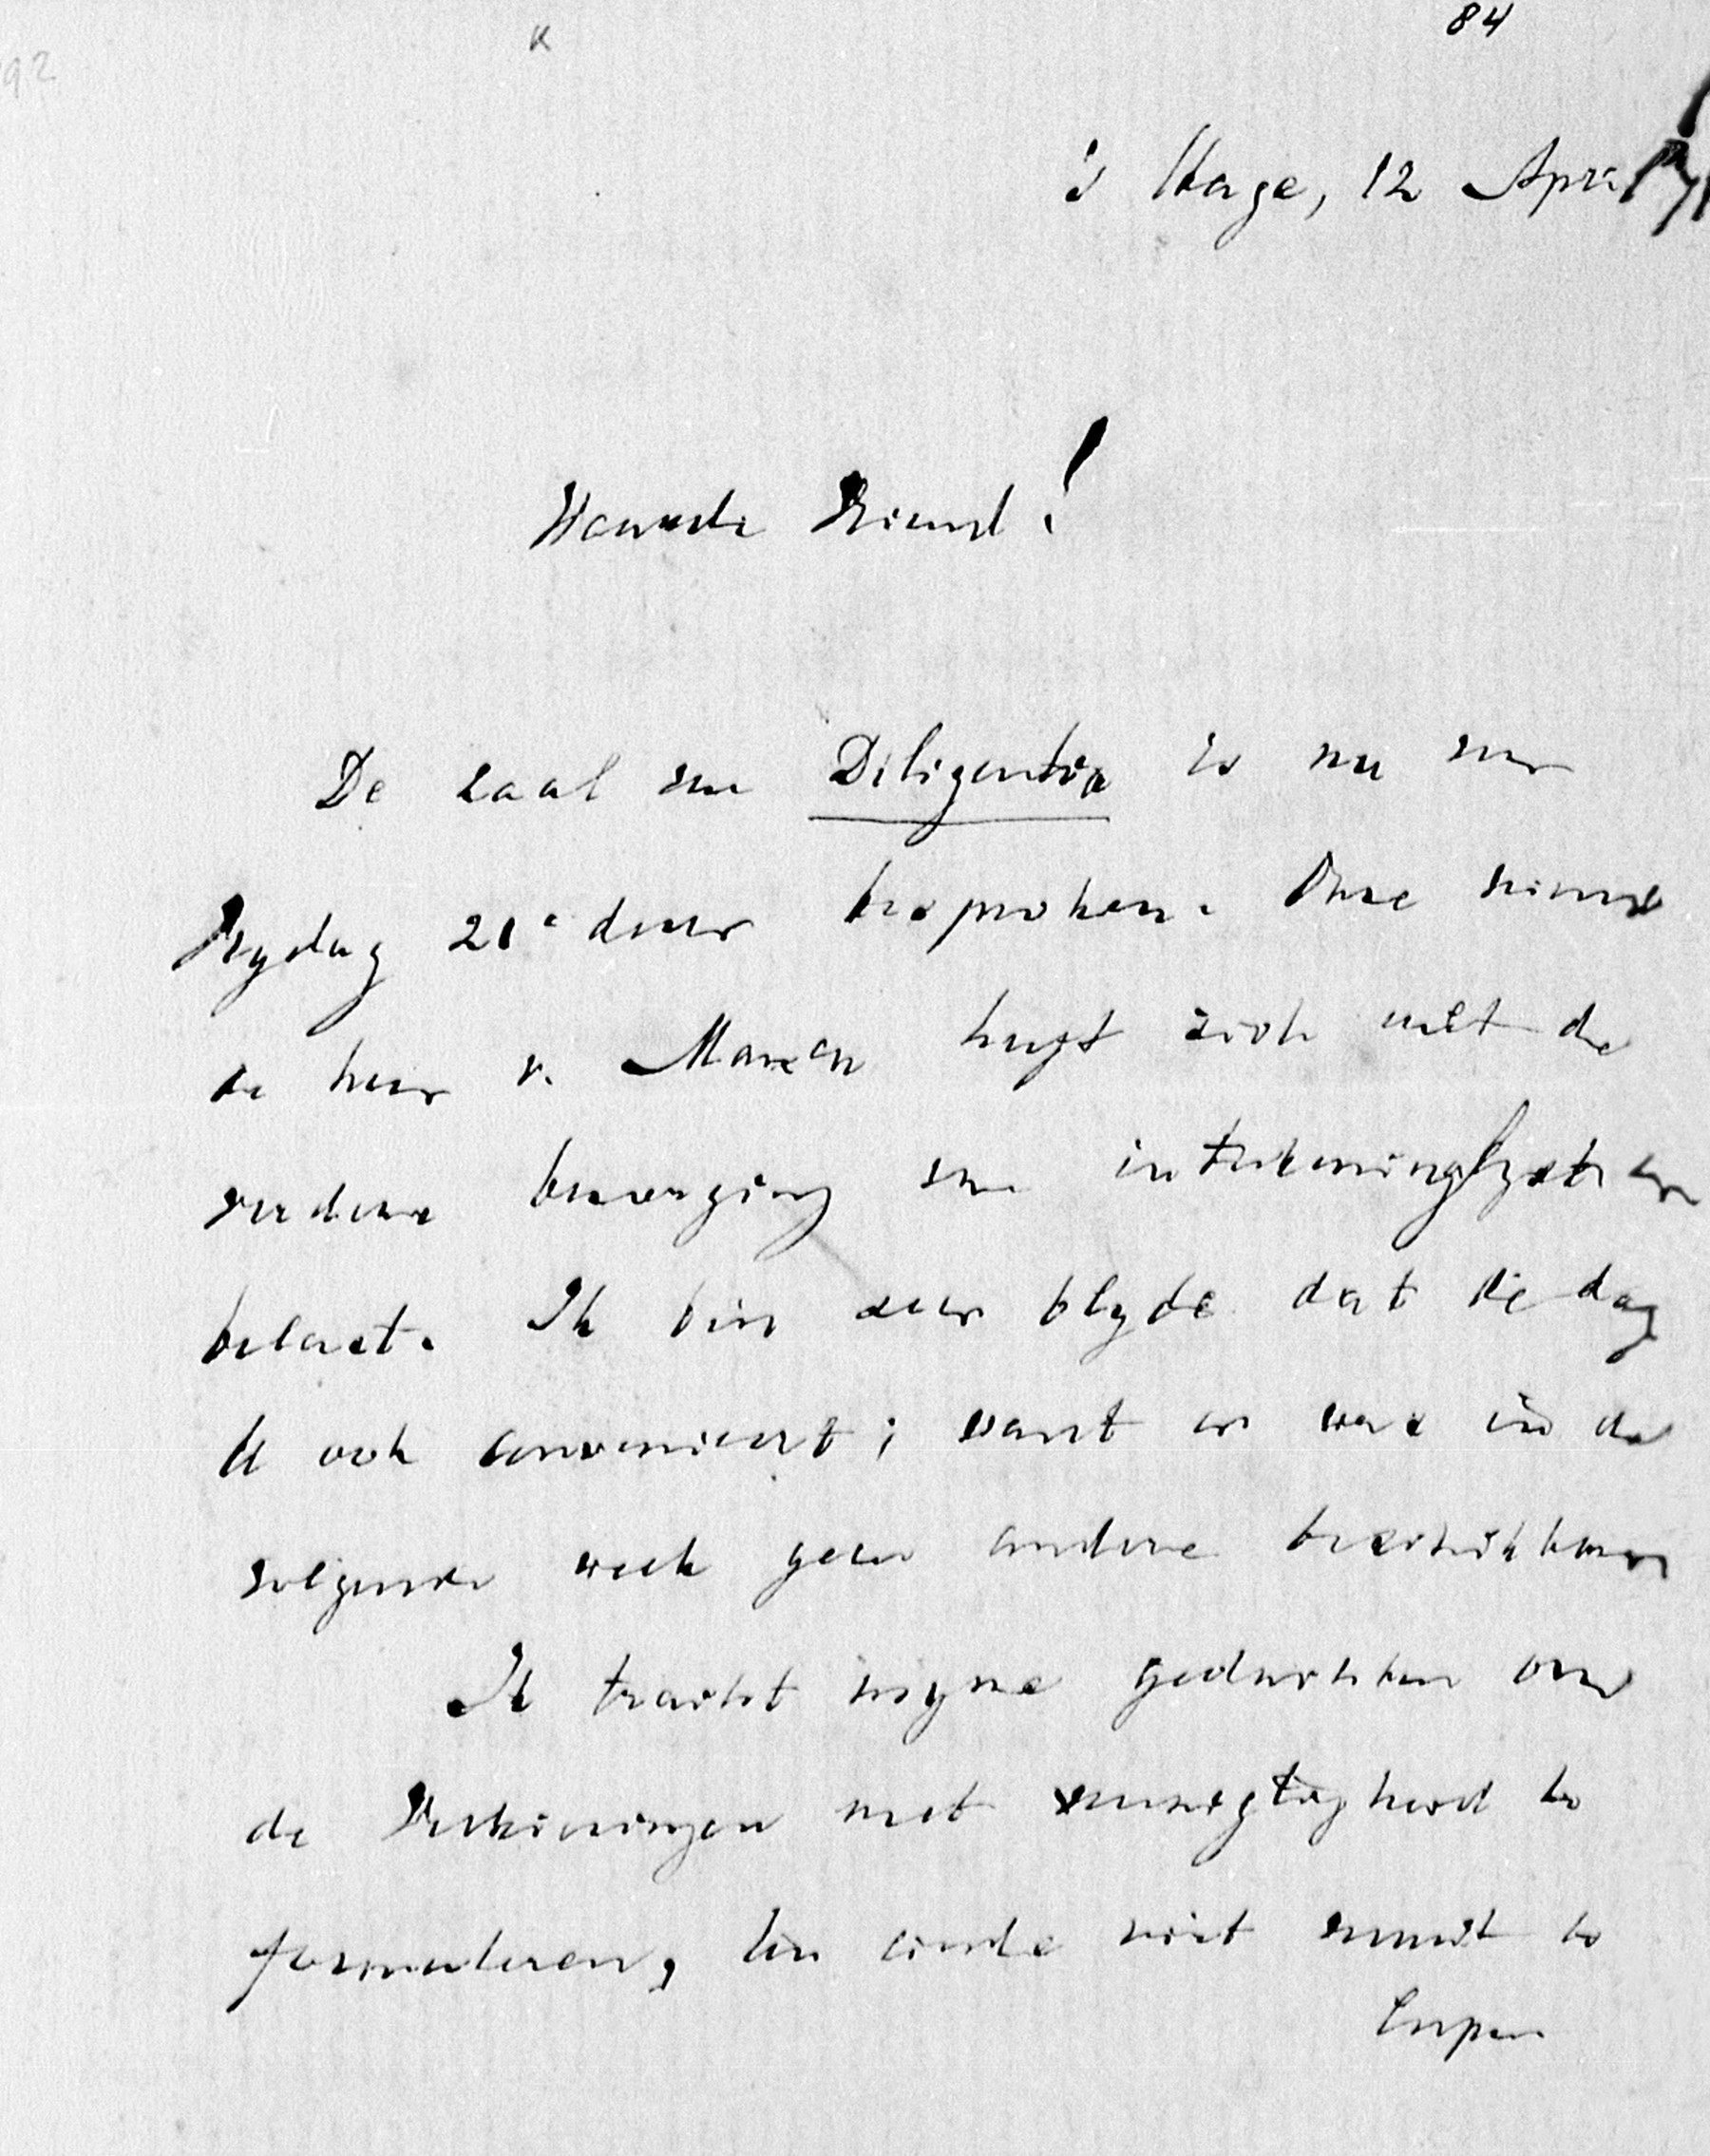 84
K
92
's Hage, 12 April
Waarde Vriend!
De zaal van Diligentia is nu voor
Vrydag 21e dezer besproken. Onze vriend
de heer v. Maren heeft zich met de
verdere bezorging van inteekeningslysten
belast. Ik ben zeer blyde dat die dag
U ook convenieert; want er was in de
volgende week geen andere beschikbaar
Ik tracht myne gedachten over
de Verkiezingen met omzigtigheid te
formuleren, ten einde niet vooruit te
loopen